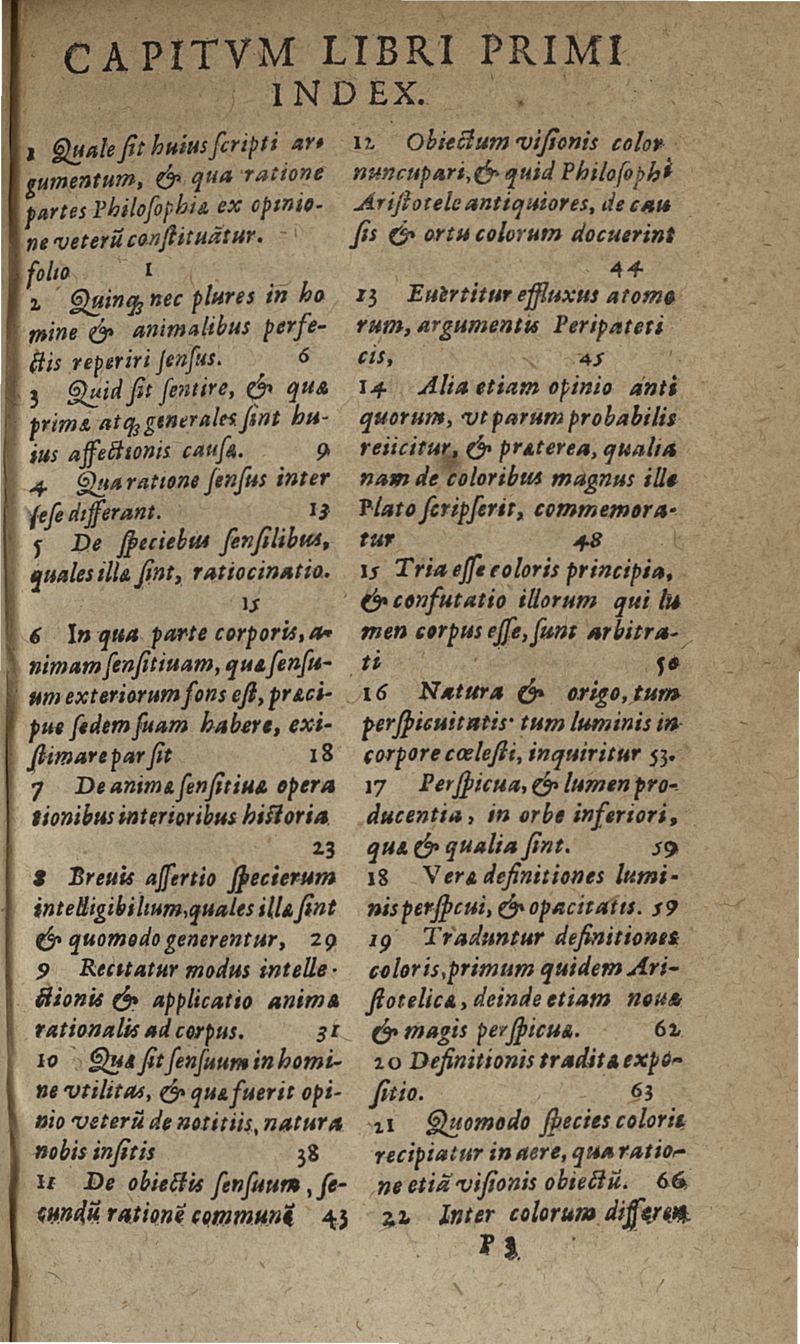 CAPITVM LIBRI PRIMI
INDEX.
1 Quale sit huius scripti ar-
gumentum, & qua ratione
partes Philosophiæ ex opinio-
ne veterũ constituãtur.
folio 1
2 Quinq; nec plures in ho
mine & animalibus perfe-
ctis reperiri sensus. 6
3 Quid sit sentire, & quæ
primæ atq; generales sint hu-
ius affectionis causæ. 9
4 Qua ratione sensus inter
sese differant. 13
5 De speciebus sensilibus,
quales illæ sint, ratiocinatio.
15
6 In qua parte corporis, a-
nimam sensitiuam, quæ sensu-
um exteriorum fons est, præci-
pue sedem suam habere, exi-
stimare par sit 18
7 De animæ sensitiuæ opera
tionibus interioribus historia
23
8 Breuis assertio specierum
intelligibilium, quales illæ sint
& quomodo generentur, 29
9 Recitatur modus intelle-
ctionis & applicatio animæ
rationalis ad corpus. 31
10 Quæ sit sensuum in homi-
ne vtilitas, & quæ fuerit opi-
nio veterũ de notitiis, natura
nobis insitis 38
11 De obiectis sensuum, se-
cundũ rationẽ communẽ 43
12 Obiectum visionis color
nuncupari, & quid Philosophi
Aristotele antiquiores, de cau
sis & ortu colorum docuerint
44
13 Euertitur effluxus atomo
rum, argumentis Peripateti
cis, 45
14 Alia etiam opinio anti
quorum, vt parum probabilis
reiicitur, & præterea, qualia
nam de coloribus magnus ille
Plato scripserit, commemora-
tur 48
15 Tria esse coloris principia,
& confutatio illorum qui lu
men corpus esse, sunt arbitra-
ti 50
16 Natura & origo, tum
perspicuitatis tum luminis in
corpore cœlesti, inquiritur 53.
17 Perspicua, & lumen pro-
ducentia, in orbe inferiori,
quæ & qualia sint. 59
18 Veræ definitiones lumi-
nis perspcui, & opacitatis. 59
19 Traduntur definitiones
coloris, primum quidem Ari-
stotelica, deinde etiam nouæ
& magis perspicuæ. 62
20 Definitionis traditæ expo-
sitio. 63
21 Quomodo species coloris
recipiatur in aere, qua ratio-
ne etiã visionis obiectũ. 66
22 Inter colorum differen
P 3